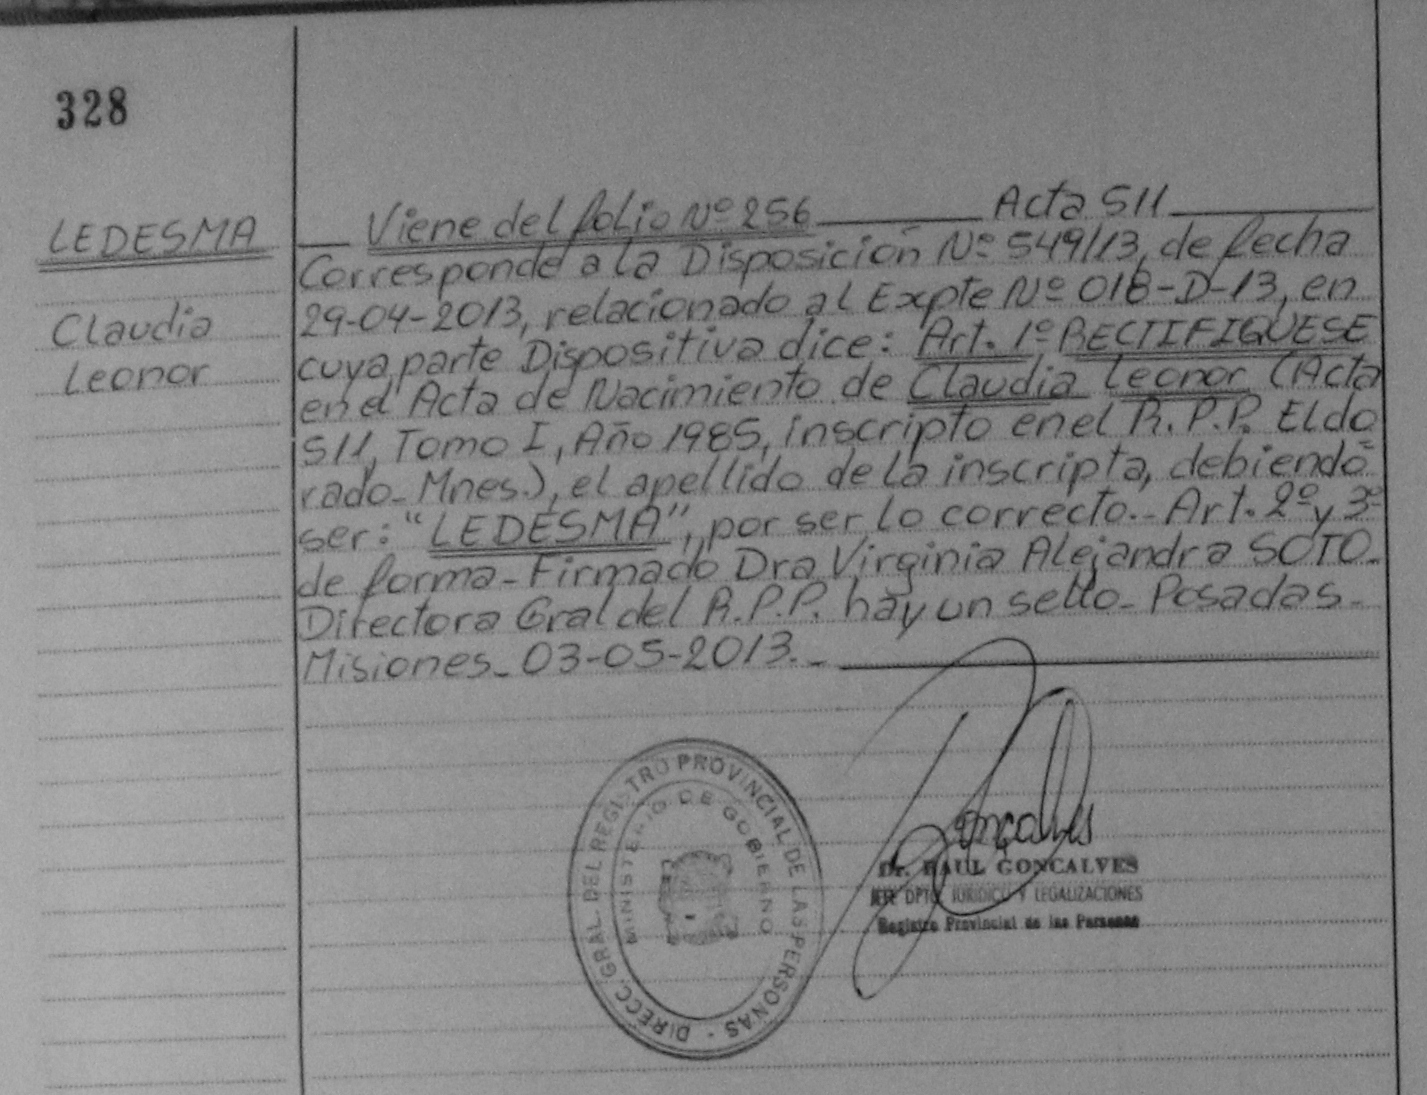 328
LEDESMA
Claudia
Leonor
Viene del folio Nº 256 Acta 511
Corresponde a la Disposición Nº 549/13, de fecha
29-04-2013, relacionado al Expte Nº 018-D-13, en
cuya parte Dispositiva dice: Art. 1º RECTIFIQUESE
en el Acta de Nacimiento de Claudia Leonor (Acta
511, Tomo I, Año 1985, inscripto en el R.P.P. Eldo
rado-Mnes.), el apellido de la inscripta, debiendo
ser: "LEDESMA", por ser lo correcto.- Art. 2º y 3º
de forma-Firmado Dra Virginia Alejandra SOTO-
Directora Gral del R.P.P. hay un sello-Posadas-
Misiones-03-05-2013.-
DIRECC. GRAL. DEL REGISTRO PROVINCIAL DE LAS PERSONAS -
MINISTERIO DE GOBIERNO
Goncalves
Dr. RAUL GONCALVES
JEFE DPTO. JURIDICO Y LEGALIZACIONES
Registro Provincial de las Personas